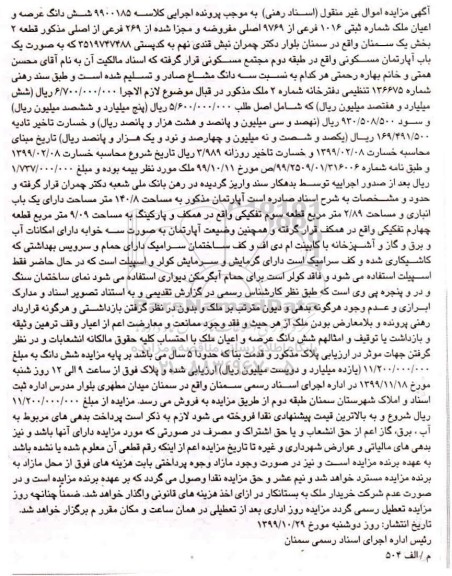 آگهی مزایده اموال غیر منقول (اسناد رهنی) به موجب پرونده اجرایی کلاسه ۹۹۰۰۱۸۵ شش دانگ عرصه و
اعیان ملک شماره ثبتی ۱۰۱۶ فرعی از ۹۷۶۹ اصلی مفروضه و مجزا شده از ۲۶۹ فرعی از اصلی مذکور قطعه ۲
بخش یک سمنان واقع در سمنان بلوار دکتر چمران نبش قندی نهم به کدپستی ۳۵۱۹۷۴۷۴۸۸ که به صورت یک
باب آپارتمان مسکونی واقع در طبقه دوم مجتمع مسکونی قرار گرفته که اسناد مالکیت آن به نام آقای محسن
همتی و خانم بهاره رحمتی هر کدام به نسبت سه دانگ مشاع صادر و تسلیم شده است و طبق سند رهنی
شماره ۱۳۶۶۷۵ تنظیمی دفترخانه شماره ۲ ملک مذکور در قبال موضوع لازم الاجرا ۶/۷۰۰/۰۰۰/۰۰۰ ریال (شش
میلیارد و هفتصد میلیون ریال) که شامل اصل طلب ۵/۶۰۰/۰۰۰/۰۰۰ ریال (پنج میلیارد و ششصد میلیون ریال)
و سود ۹۳۰/۵۰۸/۵۰۰ ریال (نهصد و سی میلیون و پانصد و هشت هزار و پانصد ریال) و خسارت تاخیر تادیه
۱۶۹/۴۹۱/۵۰۰ ریال (یکصد و شصت و نه میلیون و چهارصد و نود و یک هزار و پانصد ریال) تاریخ مبنای
محاسبه خسارت ۱۳۹۹/۰۲/۰۸ و خسارت تاخیر روزانه ۳/۹۸۹ ریال تاریخ شروع محاسبه خسارت ۱۳۹۹/۰۲/۰۸
و طبق نامه شماره ۹۹/۲۵۰۹/۰۱/۳۱۶۰۰۶/ص مورخ ۹۹/۱۰/۱۱ ملک مورد نظر بیمه بوده و مبلغ ۱/۷۳۷/۰۰۰/۰۰۰
ریال بعد از صدور اجراییه توسط بدهکار سند واریز گردیده در رهن بانک ملی شعبه دکتر چمران قرار گرفته و
حدود و مشخصات به شرح اسناد صادره است آپارتمان مذکور به مساحت ۱۴۰/۸ متر مساحت دارای یک باب
انباری و مساحت ۲/۸۹ متر مربع قطعه سوم تفکیکی واقع در همکف و پارکینگ به مساحت ۹/۰۹ متر مربع قطعه
چهارم تفکیکی واقع در همکف قرار گرفته و همچنین وضعیت آپارتمان به صورت سه خوابه دارای امکانات آب
و برق و گاز و آشپزخانه با کابینت ام دی اف و کف ساختمان سرامیک دارای حمام و سرویس بهداشتی که
کاشیکاری شده و کف سرامیک است دارای گرمایش و سرمایش کولر و اسپلیت است که در حال حاضر فقط
اسپیلت استفاده می شود و فاقد کولر است برای حمام آبگرمکن دیواری استفاده می شود نمای ساختمان سنگ
و در و پنجره پی وی است که طبق نظر کارشناس رسمی در گزارش تقدیمی و به استناد تصویر اسناد و مدارک
ابرازی و عدم وجود هرگونه بدهی و دیون مترتب بر ملک و بدون در نظر گرفتن بازداشتی و هرگونه قرارداد
رهنی پرونده و بلامعارض بودن ملک از هر حیث و فقد وجود ممانعت و معارضت اعم از اعیار وقف ترهین وثیقه
و بازداشت یا توقیف و امثالهم شش دانگ عرصه و اعیان ملک با احتساب کلیه حقوق مالکانه انشعابات و در نظر
گرفتن جهات موثر در ارزیابی پلاک مذکور و قدمت بنا که حدودا ۵ سال می باشد بر پایه مزایده شش دانگ به مبلغ
۱۱/۲۰۰/۰۰۰/۰۰۰ (یازده میلیارد و دویست میلیون ریال) ارزیابی شده و پلاک فوق از ساعت ۹ الی ۱۲ روز شنبه
مورخ ۱۳۹۹/۱۱/۱۸ در اداره اجرای اسناد رسمی سمنان واقع در سمنان میدان مطهری بلوار مدرس اداره ثبت
اسناد و املاک شهرستان سمنان طبقه دوم از طریق مزایده به فروش می رسد. مزایده از مبلغ ۱۱/۲۰۰/۰۰۰/۰۰۰
ریال شروع و به بالاترین قیمت پیشنهادی نقدا فروخته می شود لازم به ذکر است پرداخت بدهی های مربوط به
آب، برق، گاز اعم از حق انشعاب و یا حق اشتراک و مصرف در صورتی که مورد مزایده دارای آنها باشد و نیز
بدهی های مالیاتی و عوارض شهرداری و غیره تا تاریخ مزایده اعم از اینکه رقم قطعی آن معلوم شده یا نشده باشد
به عهده برنده مزایده است و نیز در صورت وجود مازاد وجوه پرداختی بابت هزینه های فوق از محل مازاد به
برنده مزایده مسترد خواهد شد و نیم عشر و حق مزایده نقدا وصول می گردد که بر عهده برنده مزایده است و در
صورت عدم شرکت خریدار ملک به بستانکار در ازای اخذ هزینه های قانونی واگذار خواهد شد. ضمناً چنانچه روز
مزایده تعطیل رسمی گردد مزایده روز اداری بعد از تعطیلی در همان ساعت و مکان مقرر م برگزار خواهد شد.
تاریخ انتشار: روز دوشنبه مورخ ۱۳۹۹/۱۰/۲۹
رئیس اداره اجرای اسناد رسمی سمنان
م/الف ۵۰۴